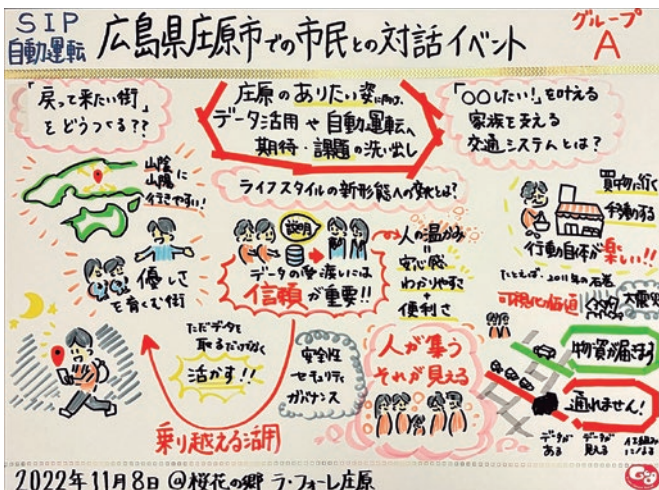 SIP
自動運転
広島県庄原市での市民との対話イベント
グループ
A
「戻って来たい街」
をどうつくる??
庄原のありたい姿に向け、
データ活用や自動運転へ
期待・課題の洗い出し
「〇〇したい!」を叶える
家族を支える
交通システムとは?
山陰に
山陽
行きやすい!
優しさ
を育む街
ライフスタイルの新形態への変化とは?
説明
データの受け渡しには
信頼が重要!!
人の温かみ
=
安心感
わかりやすさ
+
便利さ
買物に行く
移動する
行動自体が楽しい!!
たとえば・2011年の石巻
可視化価値
大震災
ただデータを
取るだけでなく
活かす!!
乗り越える活用
安全性
セキュリティ
ガバナンス
人が集う
それが見える
物資が届きます
通れません!
データが
ある
データが
見える
2022年11月8日 @桜花の郷 ラ・フォーレ庄原